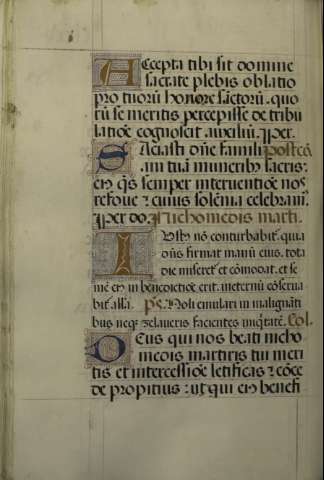 Accepta tibi sit domine
sacrate plebis oblatio
pro tuorū honore sāctorū. quo
rū se meritis percepisse de tribu
latiōe cognoscit auxiliū. p̱er.
Saciasti dn̄e famili postcō.
am tuā muneribꝰ sacris:
eiꝰ q̄s semper interventiōe nos
refove ꝛ cuius solēnia celebramꝰ.
p̱er do. Nichomedis marti.
Iustꝰ nō conturbabitꝰ. quia
dn̄s firmat manū eius. tota
die miseretꝰ et cōmodat. et se
mē eiꝰ in benedictiōe erit. in eternū cōserva
bitꝰ all'a. ps. Noli emulari in malignāti
bus neqꝫ zelaveris facientes iniq̄tatē. Col.
Deus qui nos beati nicho
medis martiris tui meri
tis et intercessiōe letificas ꝛ cōce
de propitius: ut qui eiꝰ benefi